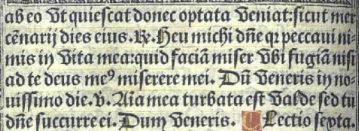 ab eo vt quiescat donec optata veniat: sicut mer
cēnarij dies eius. ℟. Heu michi dñe q: peccaui ni
mis in vita mea: quid faciā miser vbi fugiā nisi
ad te deus meꝰ miserere mei. Dū veneris in no
uissimo die. ꝟ. Aīa mea turbata est valde sed tu
dñe succurre ei. Dum veneris. Lectio septa.